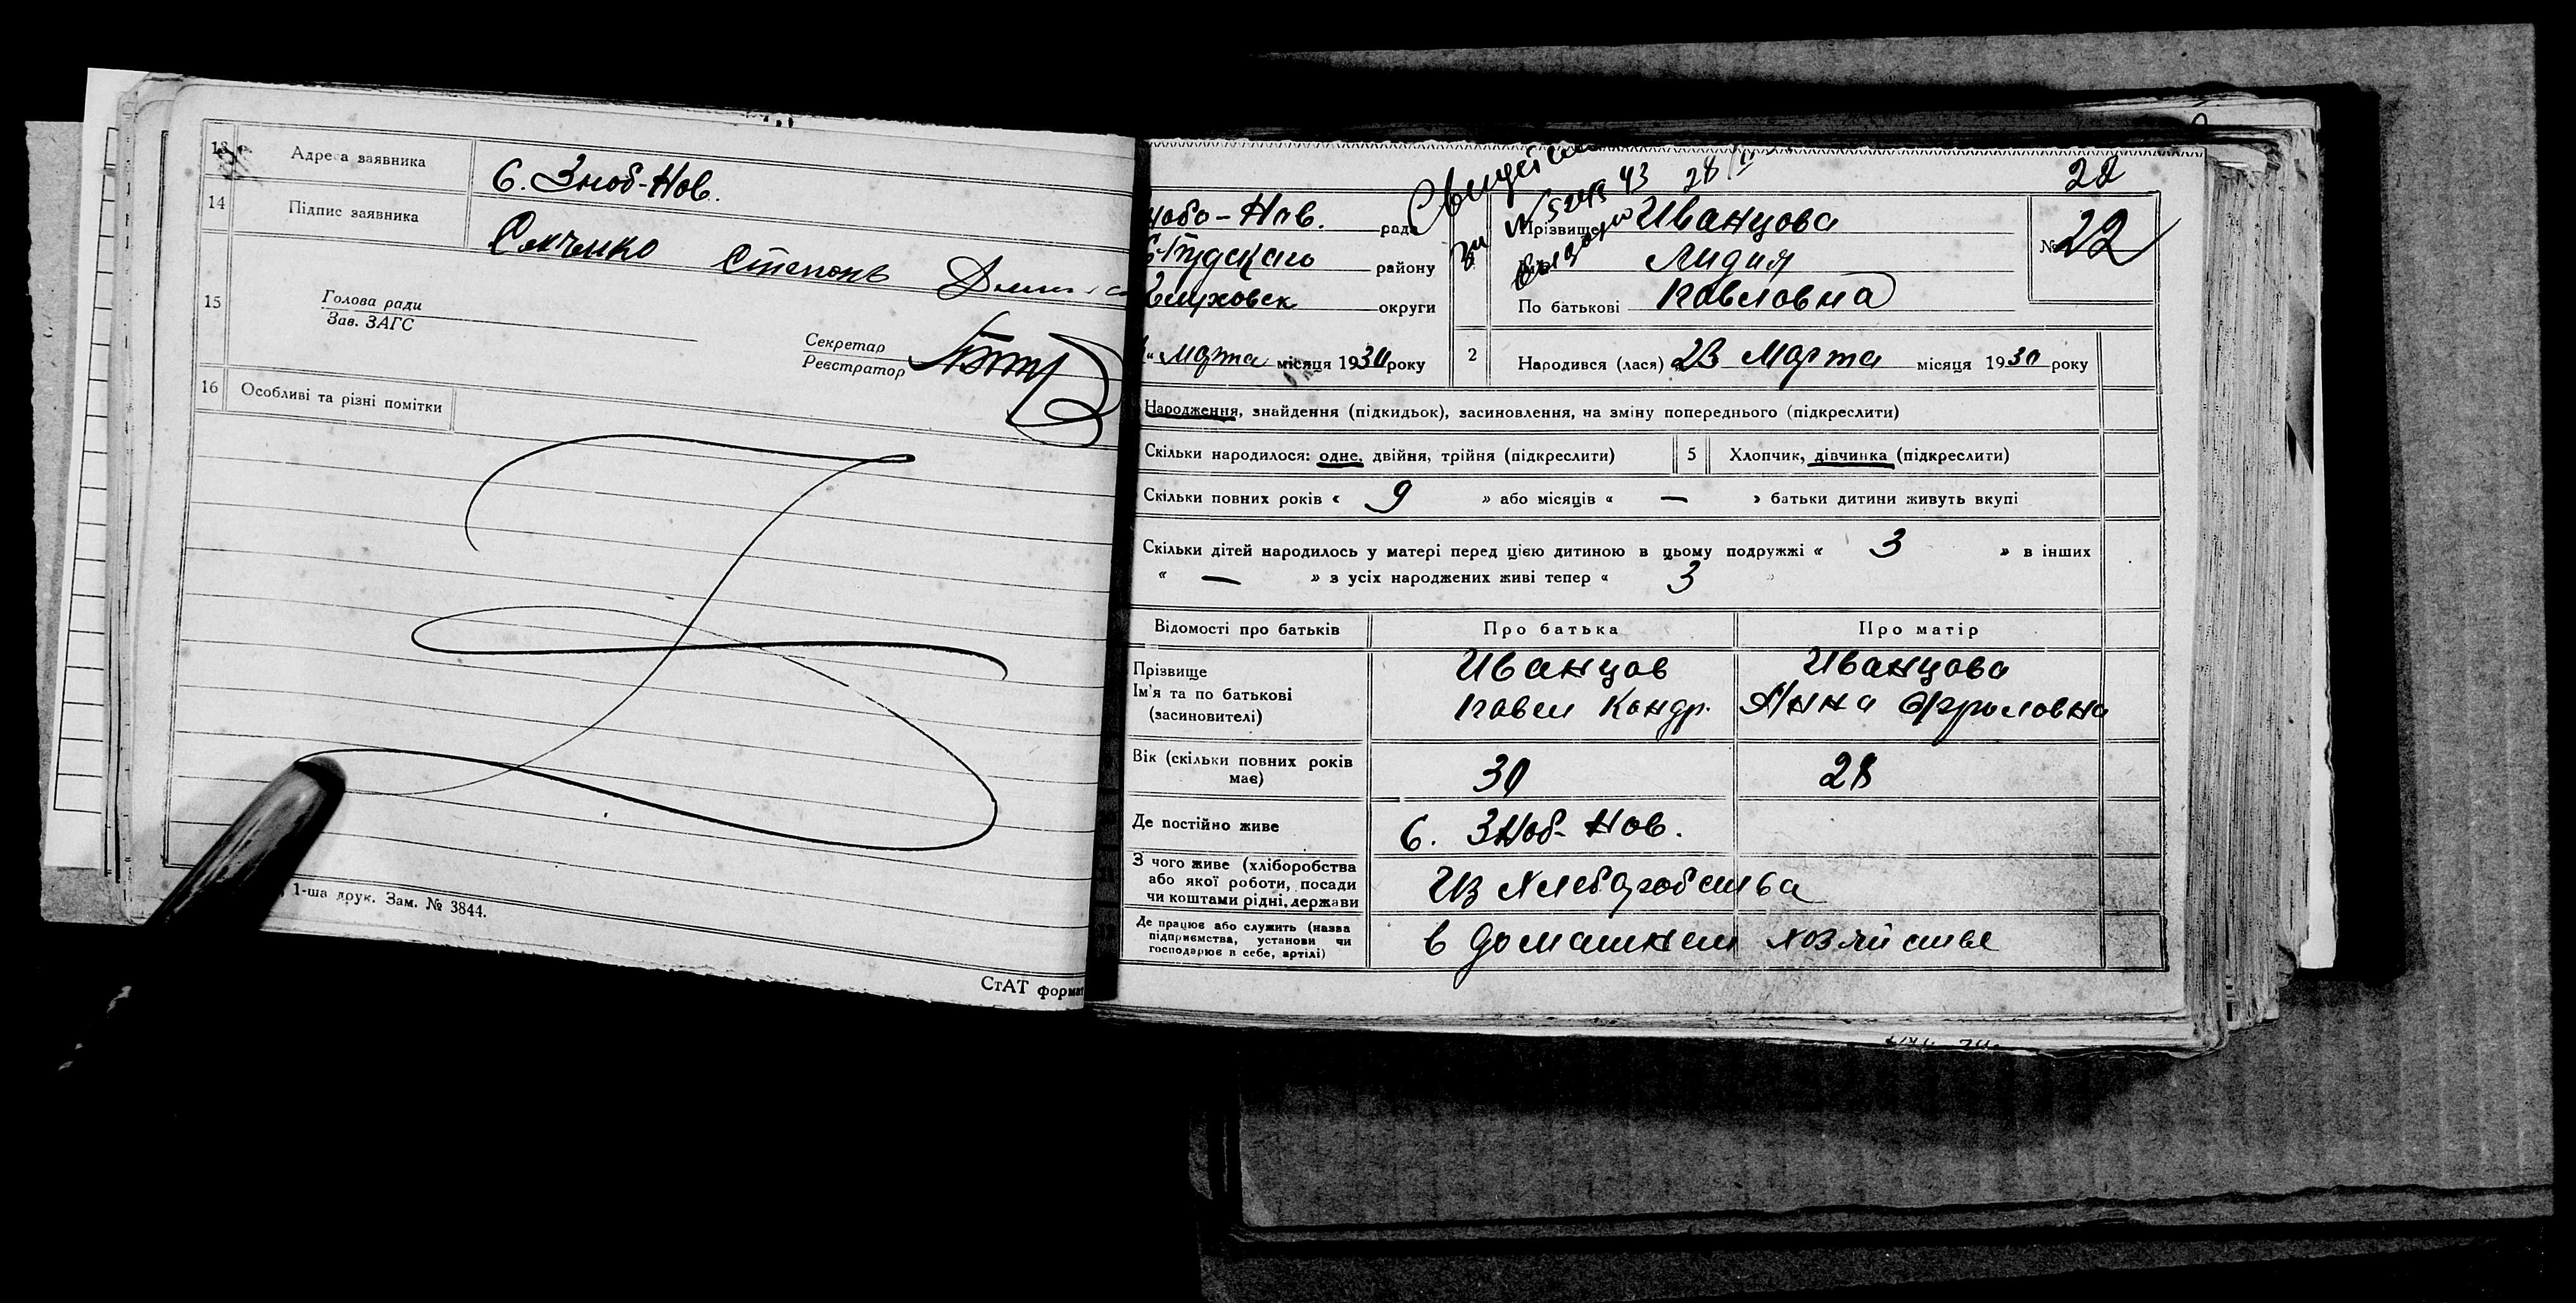 13 Адреса заявника С. Зноб-Нов.
14 Підпис заявника Степонь
15 Голова ради
Зав. ЗАГС
Секретар
Реєстратор
16 Особливі та різні помітки
1-ша друк. Зам. № 3844.
СтАТ формат
22
нобо-Нов. рада
району
округи
Марта місяця 1930 року
Прізвище Иванцова
Лидия
По батькові Павловна
№ 22
2 Народився (лася) 23 Марта місяця 1930 року
Народження, знайдення (підкидьок), засиновлення, на зміну попереднього (підкреслити)
Скільки народилося: одне, двійня, трійня (підкреслити) 5 Хлопчик, дівчинка (підкреслити)
Скільки повних років « 9 » або місяців « — » батьки дитини живуть вкупі
Скільки дітей народилось у матері перед цією дитиною в цьому подружжі « 3 » в інших
« — » з усіх народжених живі тепер « 3 »
Відомості про батьків Про батька Про матір
Прізвище Иванцов Иванцова
Ім'я та по батькові Павел Кондр. Анна Фроловна
(засиновителі)
Вік (скільки повних років 30 28
має)
Де постійно живе С. Зноб-Нов.
З чого живе (хліборобства
або якої роботи, посади Из Хлеборобства
чи коштами рідні, держави
Де працює або служить (назва
підприємства, установи чи в домашнем хозяйстве
господарює в себе, артілі)